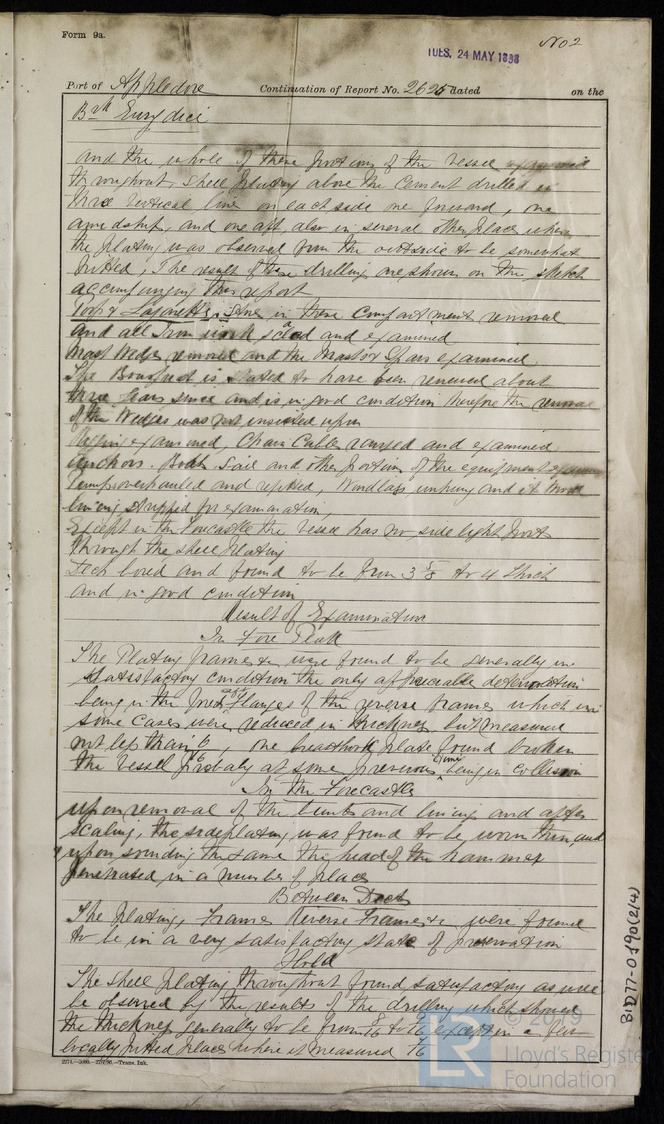 Form 9a.
No 2
TUES. 24 MAY 1898
Port of Appledore Continuation of Report No. 2625 dated on the
Bk Eurydice
and the whole of these portions of the vessel examined
throughout, Shell plating above the Cement drilled in
three vertical lines on each side one forward, one
amidship, and one aft, also in several other places where
the plating was observed from the outside to be somewhat
pitted, The result of these drilling are shown on the sketch
accompanying this report
Poop & Lazarette, in these compartments removed
and all Iron work scaled and examined
Mast Wedges removed and the Mast & Spars examined
The Bowsprit is stated to have been renewed about
three years since and is in good condition therefore the removal
of the Wedges was not insisted upon
Rigging examined, Chain Cables ranged and examined
Anchors. Boats Sails and other portion of the equipment
Pumps overhauled and refitted, Windlass unhung and its
lining stripped for examination,
Except in the Forecastle the Vessel has no side light ports
through the shell plating
Deck bored and found to be from 3 5/8 to 4 thick
and in good condition
Result of Examination
In Fore Peak
The Plating frames &c were found to be generally in
satisfactory condition the only appreciable deterioration
being in the flanges of the reverse frames which in
some cases were reduced in thickness but measured
not less than /16, one breasthook plate found broken
the vessel probably at some previous time being in collision
In the Forecastle
upon removal of the and lining and after
scaling, the side plating was found to be worn thin, and
upon sounding the same the head of the hammer
penetrated in a number of places
Between Decks
The plating, Frames Reverse Frames &c were found
to be in a very satisfactory state of preservation
Hold
The Shell plating throughout found satisfactory as will
be observed by the results of the drilling which showed
the thickness generally to be from to except in a few
locally pitted places where it measured /16
2274.—5000.—Trans. Ink.
BID77-0190(2/4)
© 2019
LR
Lloyd's Register
Foundation